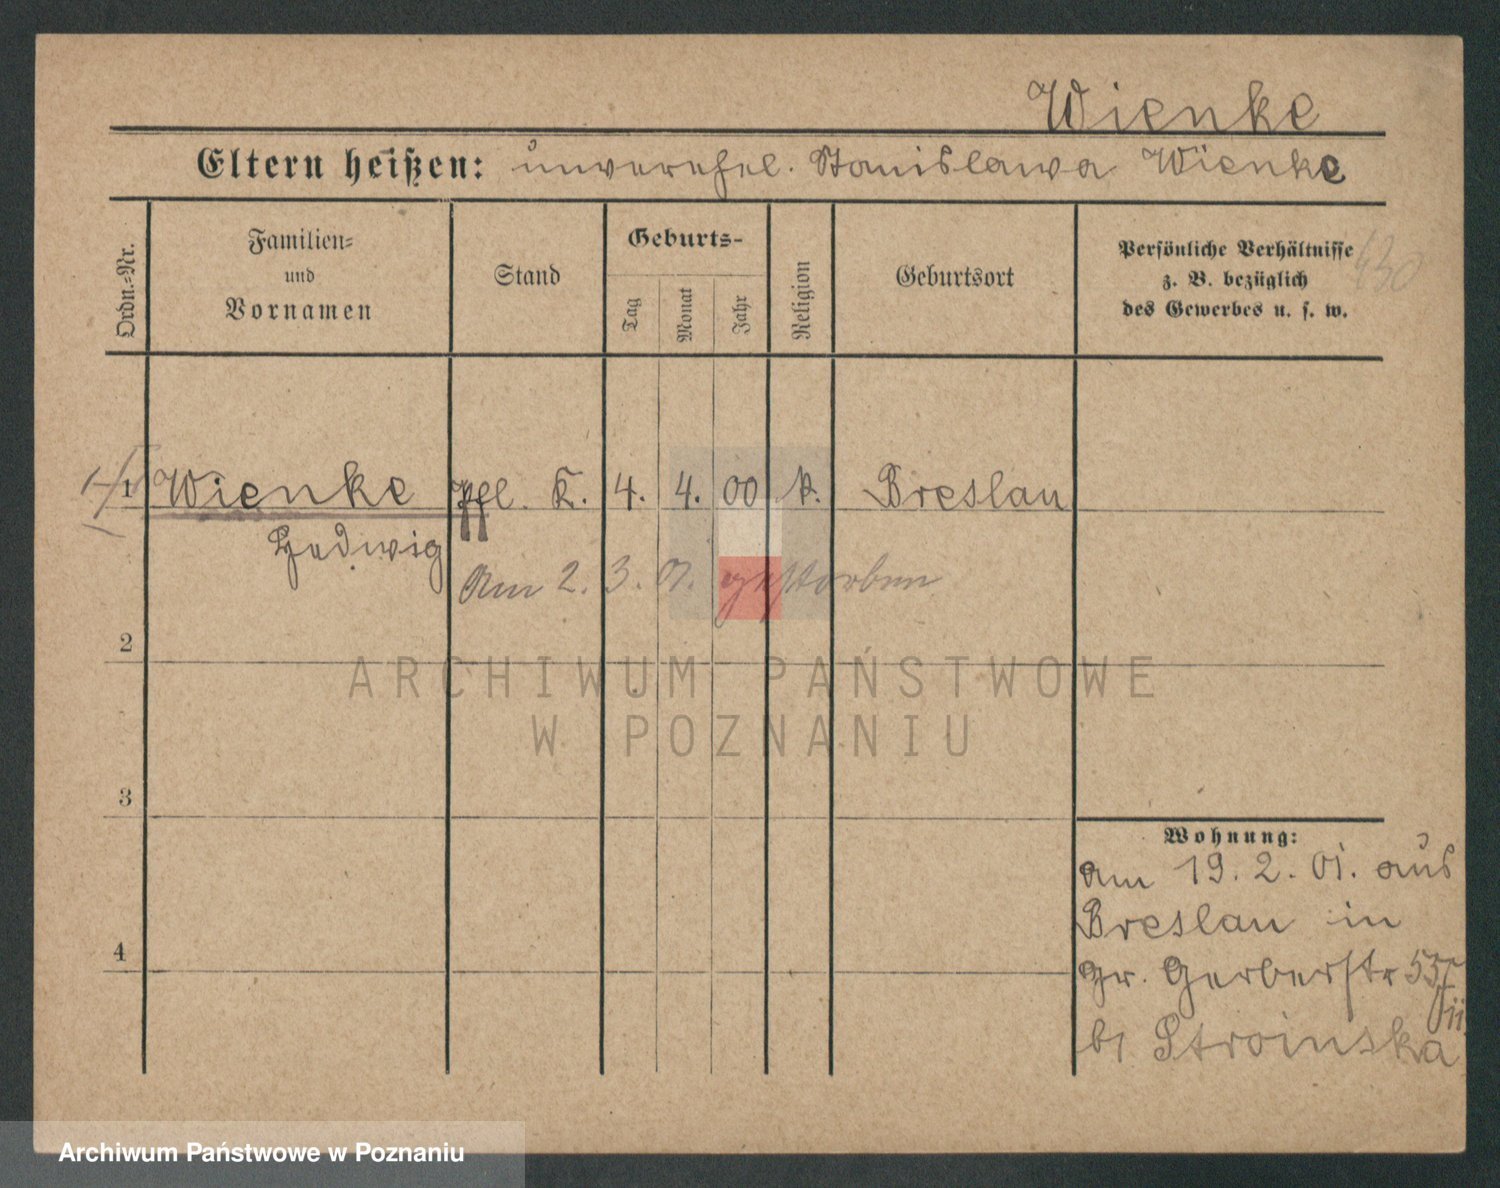 Wienke
Eltern heißen: unverehel. Stanislawa Wienke
Ordn.-Nr.
Familien- und Vornamen
Stand
Geburts-
Tag
Monat
Jahr
Religion
Geburtsort
Persönliche Verhältnisse
z. B. bezüglich
des Gewerbes u. s. w.
1 Wienke pfl. K. 4. 4. 00 k. Breslau
Hedwig
Am 2. 3. 01. gestorben
2
ARCHIWUM PAŃSTWOWE
W POZNANIU
3
Wohnung:
am 19. 2. 01. aus
Breslau in
4
gr. Gerberstr 53
b. Stroinska
Archiwum Państwowe w Poznaniu